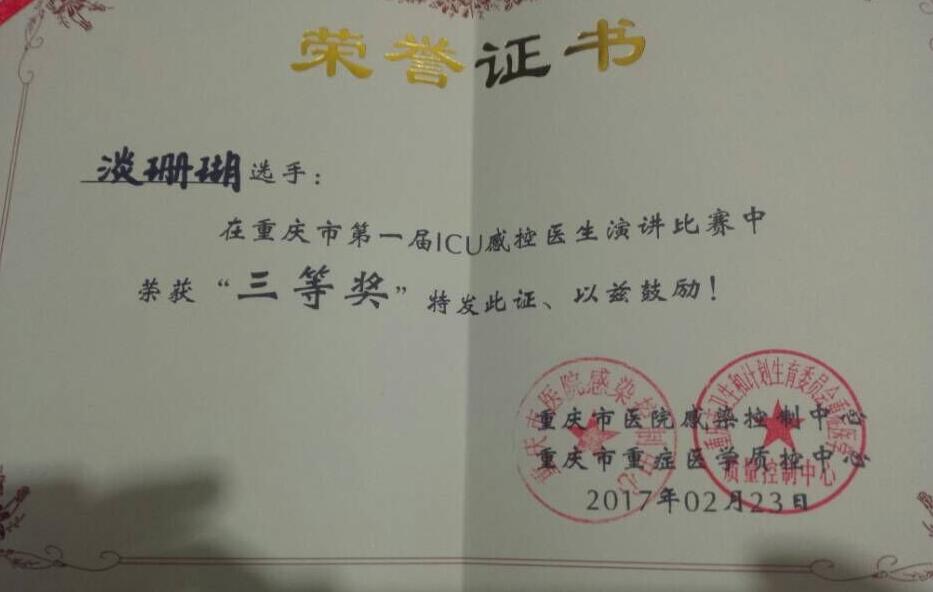 荣誉证书
淡珊瑚选手：
在重庆市第一届ICU感控医生演讲比赛中
荣获“三等奖”特发此证、以兹鼓励！
重庆市医院感染控制中心
重庆市重症医学质控中心
2017年02月23日
重庆市医院感染控制中心
重庆市卫生和计划生育委员会重症医学
质量控制中心